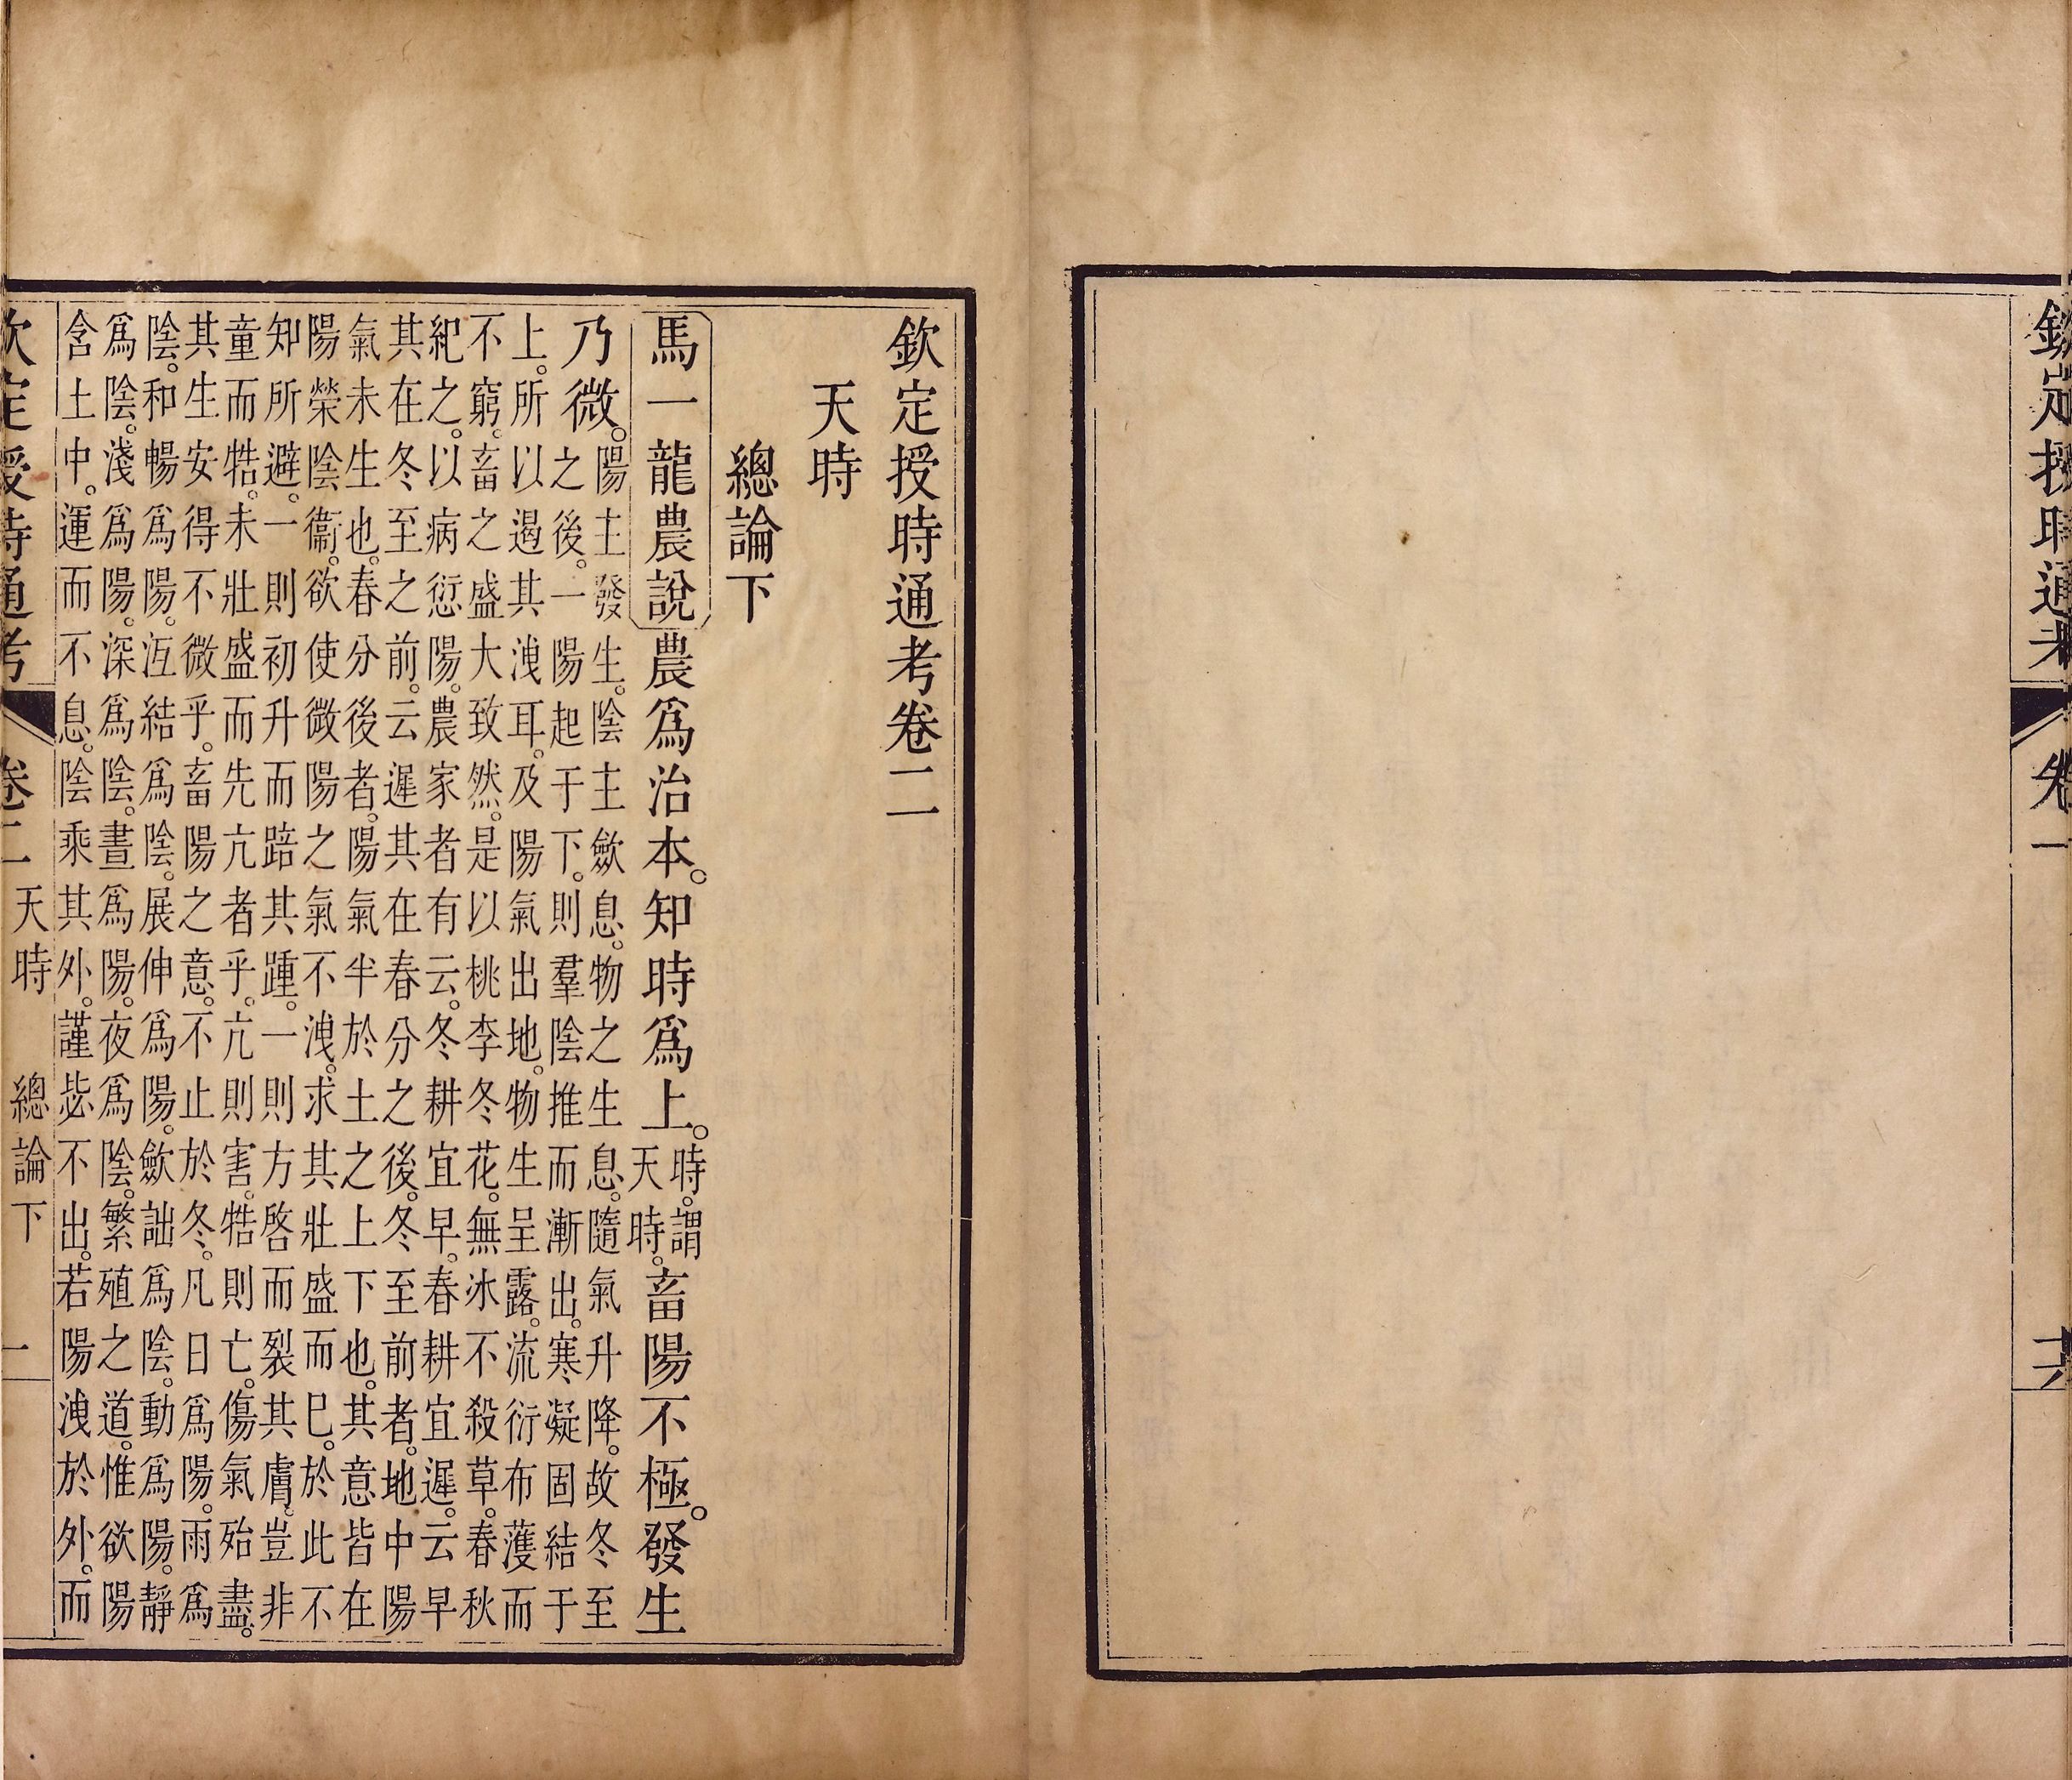 欽定授時通考 卷一
欽定授時通考卷二
天時
總論下
馬一龍農說農爲治本。知時爲上。時。謂天時。畜陽不極。發生
乃微。陽主發生。陰主斂息。物之生息。隨氣升降。故冬至
之後。一陽起于下。則羣陰推而漸出。寒凝固結于
上。所以遏其洩耳。及陽氣出地。物生呈露。流衍布濩而
不窮。畜之盛大致然。是以桃李冬花。無冰不殺草。春秋
紀之。以病愆陽。農家者有云。冬耕宜早。春耕宜遲。云早
其在冬至之前。云遲其在春分之後。冬至前者。地中陽
氣未生也。春分後者。陽氣半於土之上下也。其意皆在
陽榮陰衞。欲使微陽之氣不洩。求其壯盛而已。於此不
知所避。一則初升而踣其踵。一則方啓而裂其膚。豈非
童而牿。未壯盛而先亢者乎。亢則害。牿則亡。傷氣殆盡。
其生安得不微乎。畜陽之意。不止於冬。凡日爲陽。雨爲
陰。和暢爲陽。沍結爲陰。展伸爲陽。斂詘爲陰。動爲陽。靜
爲陰。淺爲陽。深爲陰。晝爲陽。夜爲陰。繁殖之道。惟欲陽
含土中。運而不息。陰乘其外。謹毖不出。若陽洩於外。而
欽定授時通考 卷二 天時 總論下 一